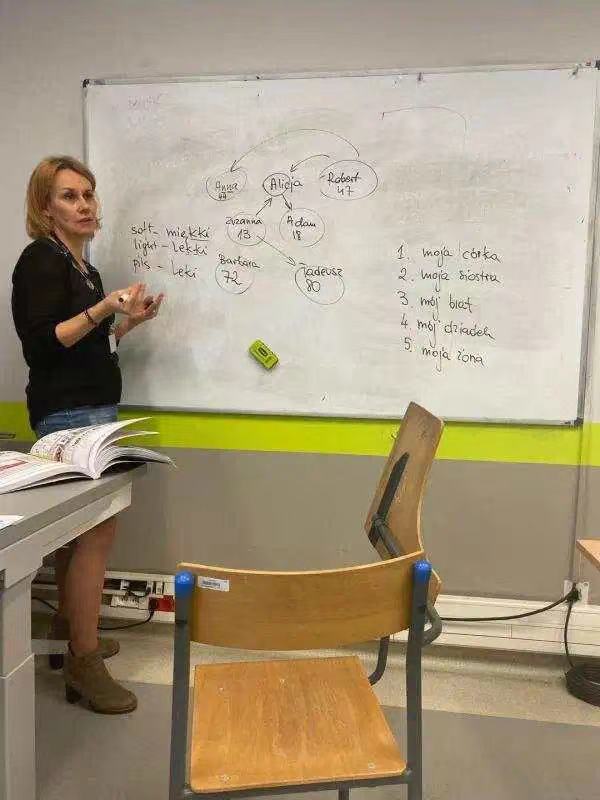 Anna
44
Alicja
Robert
47
Zuzanna
13
Adam
18
Barbara
72
Tadeusz
80
soft - miękki
light - Lekki
pils - Leki
1. moja córka
2. moja siostra
3 mój brat
4. mój dziadek
5. moja żona